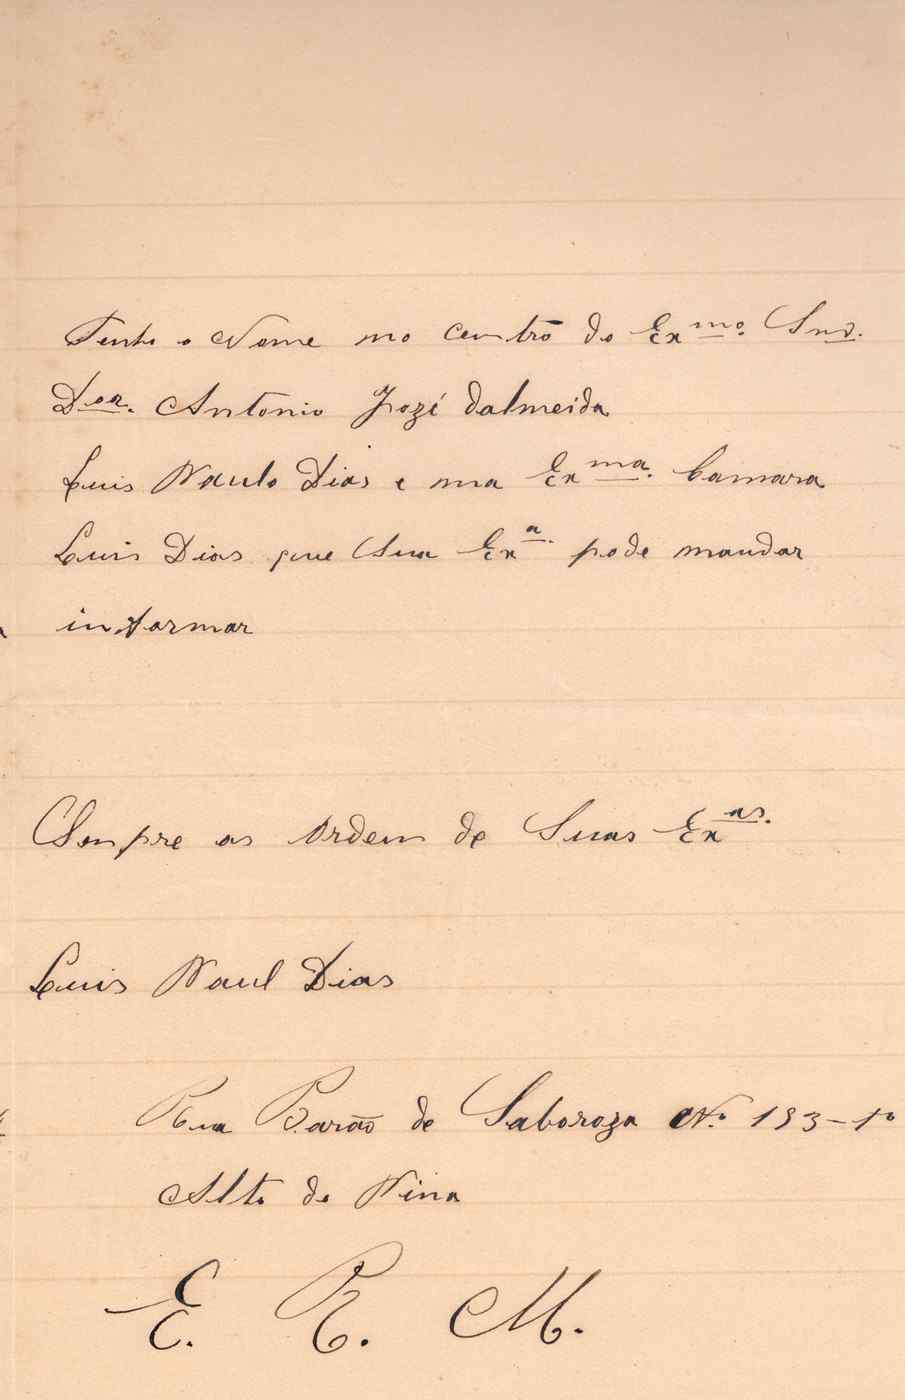 Tenho o Nome no centro do Exmo. Snr.
Dor. Antonio Jozé Dalmeida
Luis Paulo Dias e na Exma. Camara
Luis Dias que Sua Exa. pode mandar
informar
Senpre as Ordem de Suas Exas.
Luis Paul Dias
Rua Barão de Saboroza No. 193-1º
Alto do Pina
E. R. M.